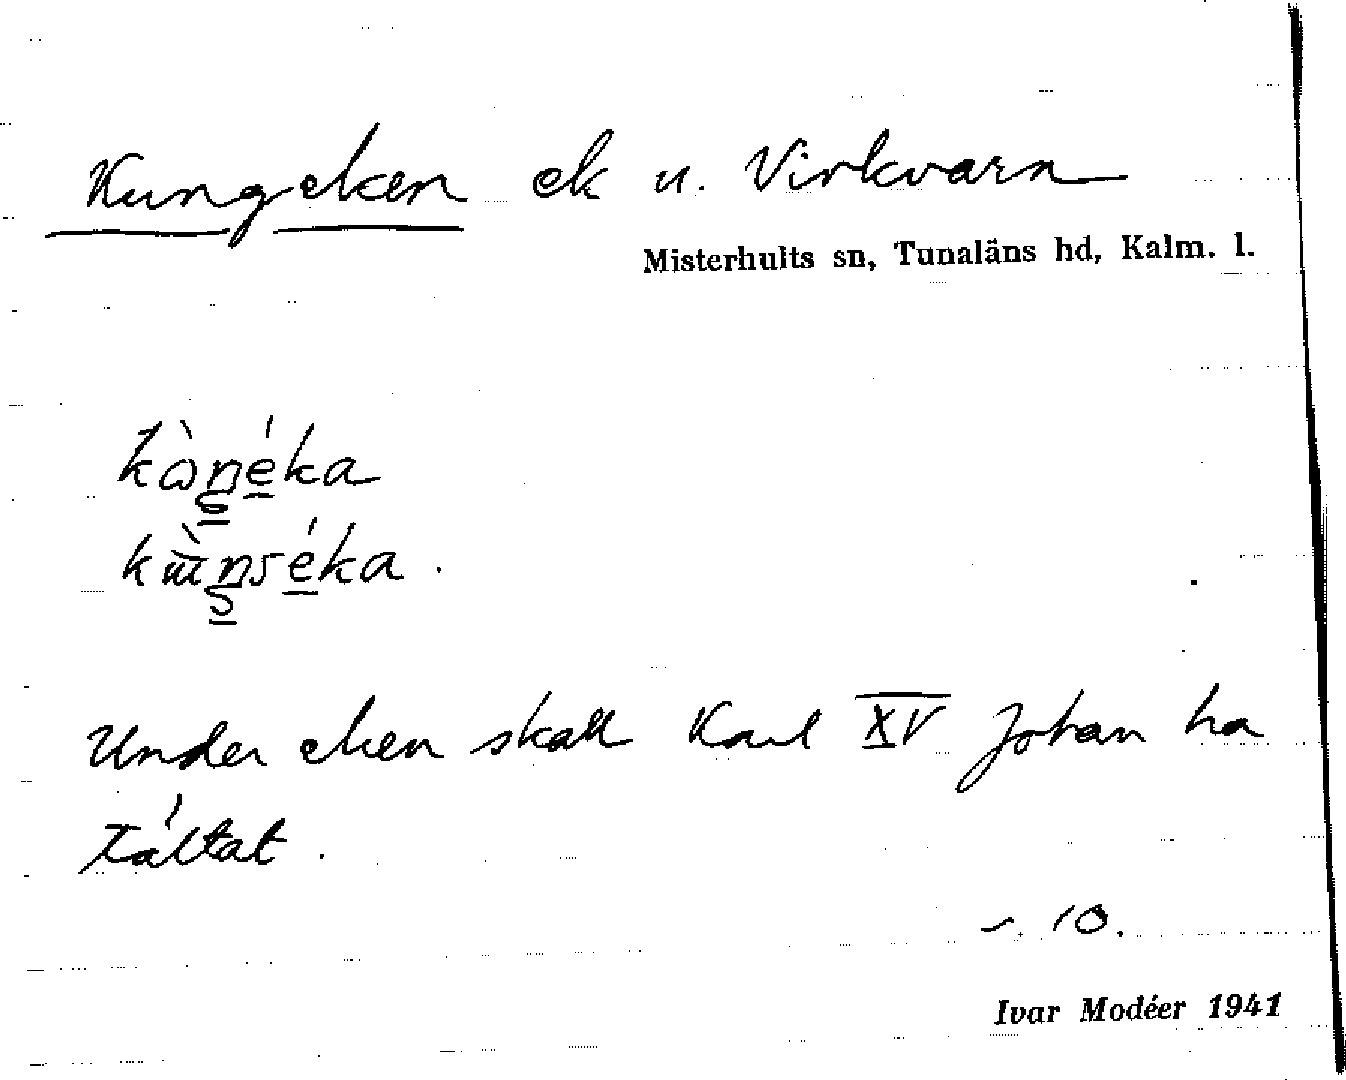 Kungeken ek u. Virkvarn
Misterhults sn, Tunaläns hd, Kalm. l.
Under eken skall Karl XV Johan ha
tältat.
s. 10.
Ivar Modéer 1941